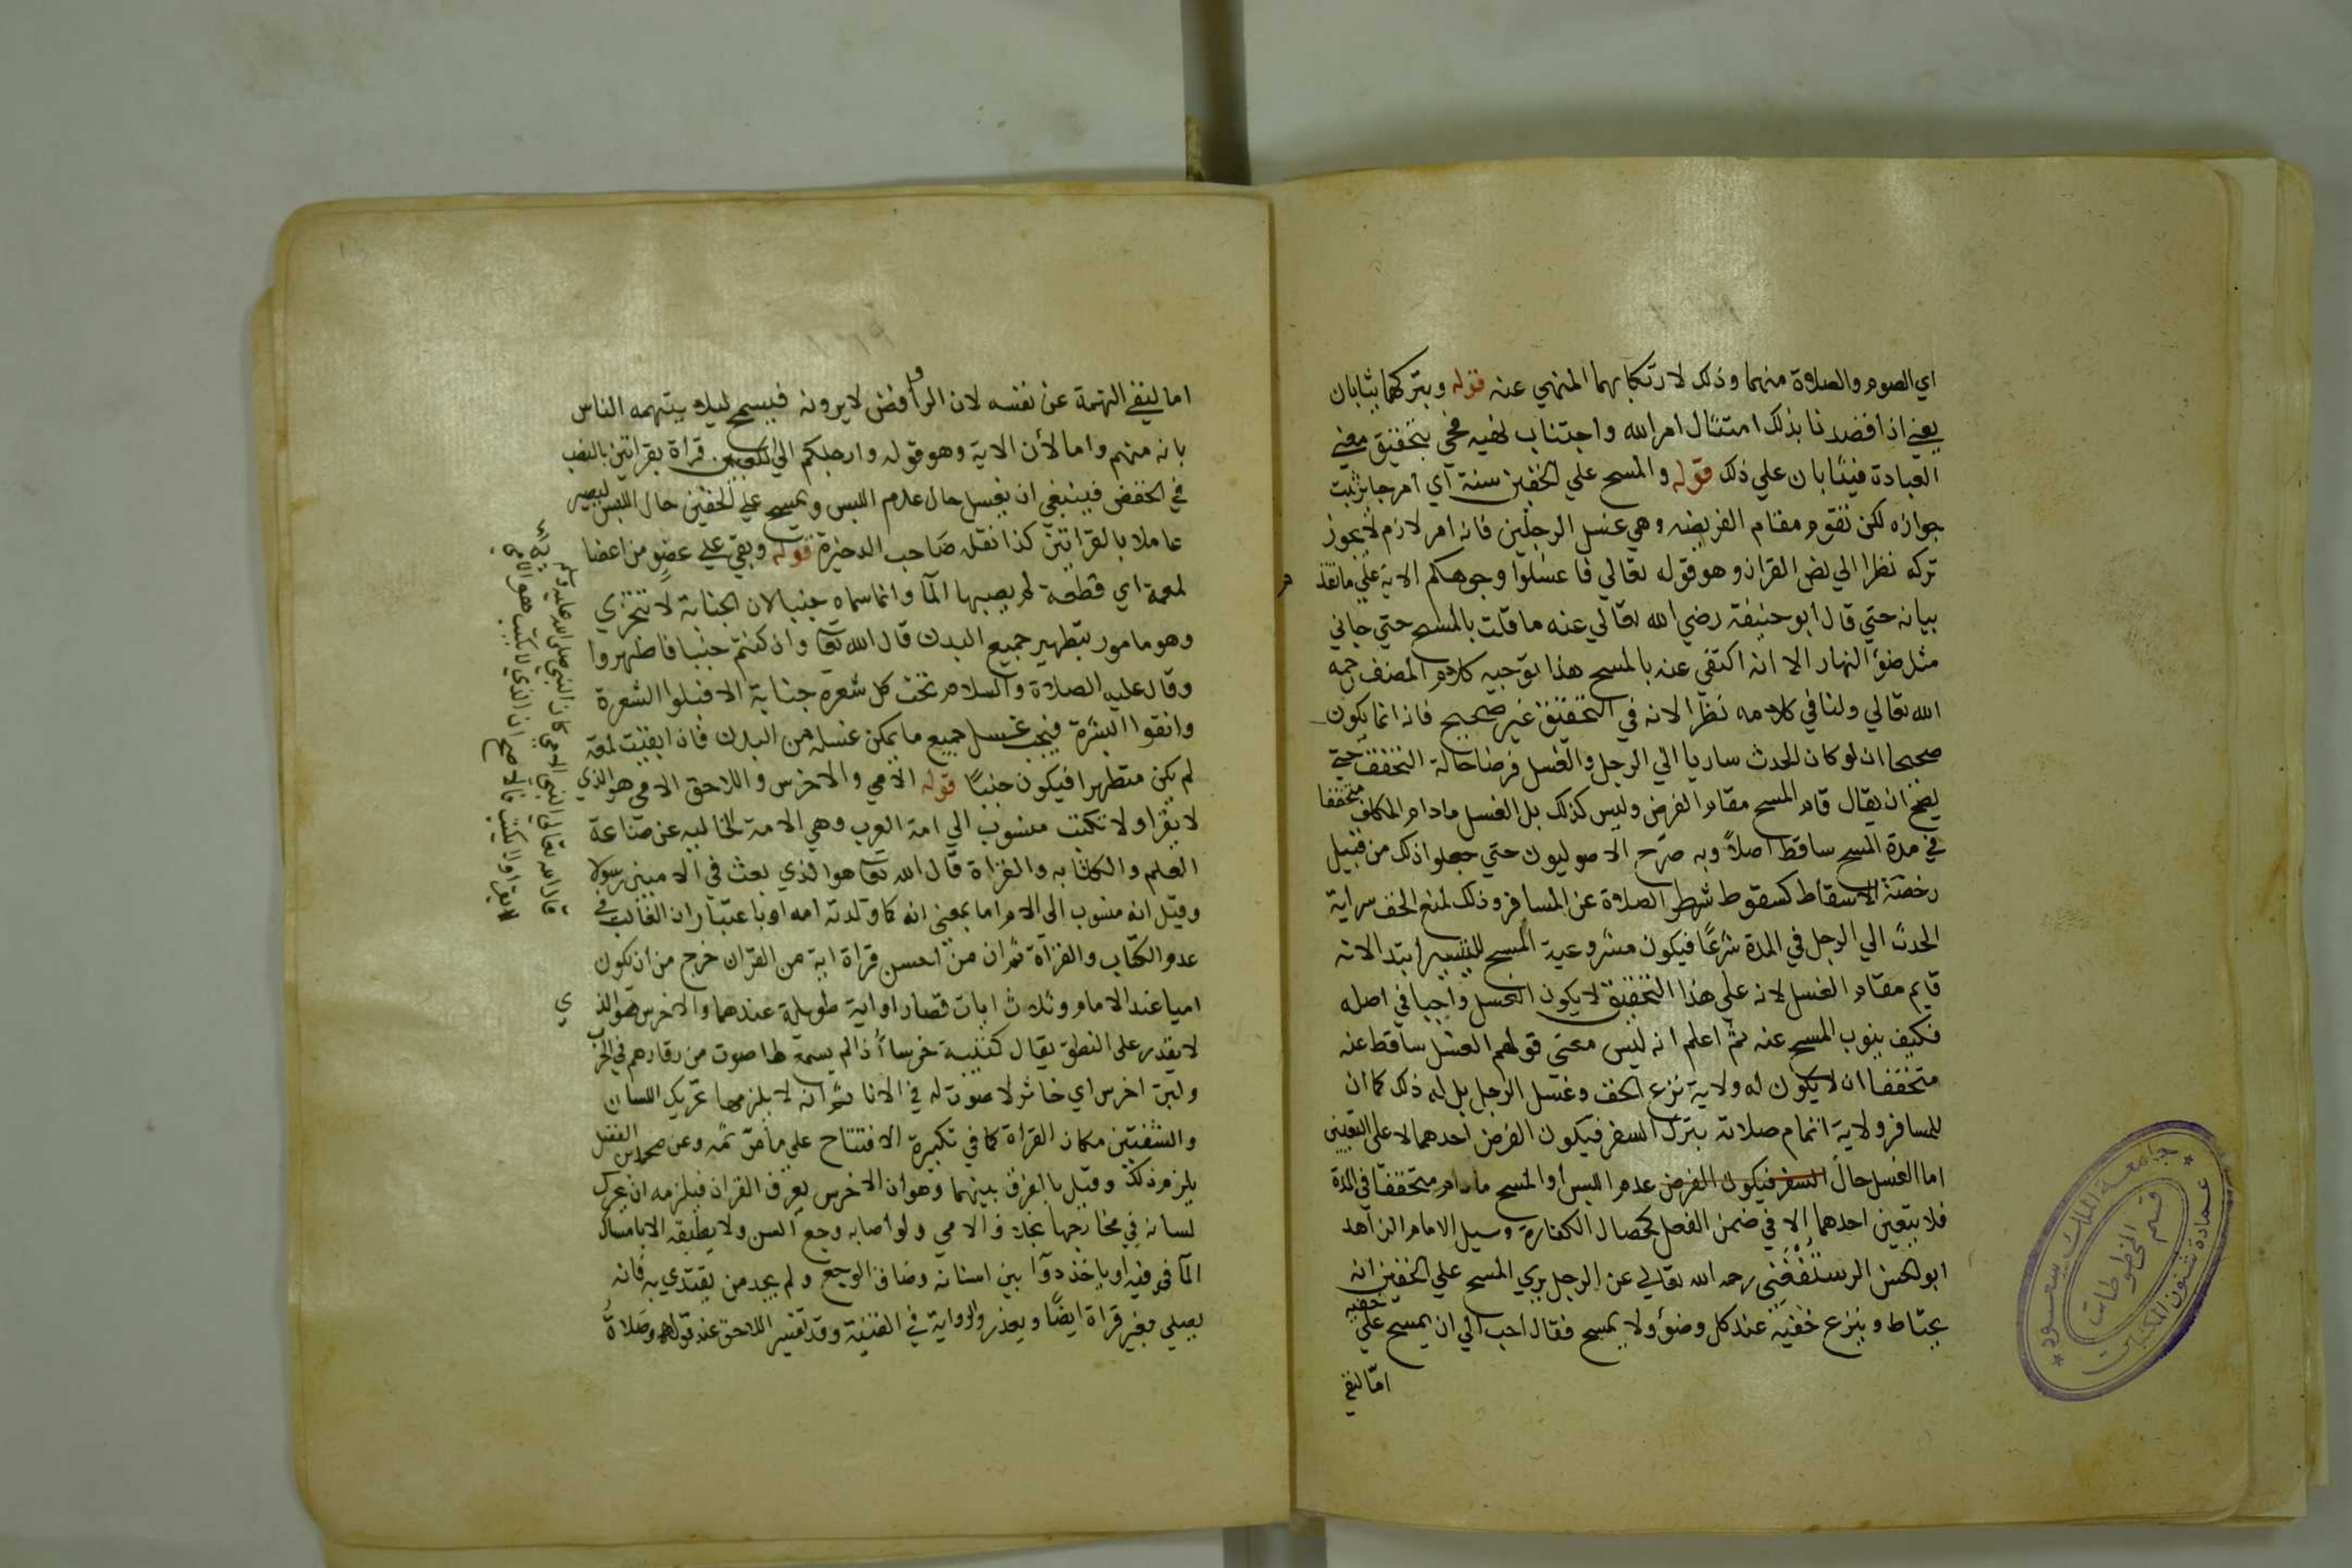 اي الصوم والصلاة منهما وذلك لارتكابهما المنهي عنه قوله وبتركهما يثابان
يعني اذا قصدنا بذلك امتثال امر الله واجتناب نهيه فحي بتحقيق معني
العبادة فيثابان علي ذلك قوله والمسح علي الخفين سنة اي امر جايز ثبت
جوازه لكن تقوم مقام الفريضه وهي غسل الرجلين فانه امر لازم لا يجوز
تركه نظرا الي نص القران وهو قوله تعالي فاغسلوا وجوهكم الاية علي ما تقد م
بيانه حتي قال ابو حنيفة رضي الله تعالي عنه ما قلت بالمسح حتي جاني
مثل ضؤ النهار الا انه اكتفي عنه بالمسح هذا توجيه كلام المصنف رحمه
الله تعالي ولنا في كلامه نظر الانه في التحقيق غير صحيح فانه انما يكون
صحيحا ان لو كان الحدث ساريا الي الرجل والغسل فرضا حالة التخفف حتي
يصح ان يقال قام المسح مقام الفرض وليس كذلك بل الغسل مادام المكلف متخففا
في مدة المسح ساقط اصلاً وبه صرّح الاصوليون حتي جعلوا ذلك من قبيل
رخصة الاسقاط كسقوط شطر الصلاة عن المسافر وذلك لمنع الخف سراية
الحدث الي الرجل في المدة شرعًا فيكون مشروعية المسح للتيسير ابتدا لانه
قايم مقام الغسل لانه علي هذا التحقيق لا يكون الغسل واجبا في اصله
فكيف ينوب المسح عنه ثم اعلم انه ليس معني قولهم الغسل ساقط عنه
متخففا ان لا يكون له ولاية نزع الخف وغسل الرجل بل له ذلك كما ان
للمسافر ولاية اتمام صلاته بترك السفر فيكون الفرض احدهما لا على التعيين
اما الغسل حال السفر فيكون الفرض عدم اللبس او المسح مادام متخففا في المدة
فلا يتعين احدهما الا في ضمن الفعل كخصال الكفارة وسيل الامام الزاهد
ابو الحسن الرستفغني رحمه الله تعالي عن الرجل يري المسح علي الخفين انه
يحتاط وينزع خفيه عند كل وضؤ ولا يمسح فقال احب الي ان يمسح علي خفيه
امّا لنفي
اما لنفي التهمة عن نفسه لان الروافض لا يرونه فيمسح ليلا يتهمه الناس
بانه منهم واما لأن الاية وهو قوله وارجلكم الي الكعبين قراة بقراتين بالنصب
في الخفض فينبغي ان يغسل حال عدم اللبس ويمسح علي الخفين حال اللبس ليصير
عاملا بالقراتين كذا نقله صاحب الدخيرة قوله وبقي علي عضو من اعضا
لمعة اي قطعة لم يصبها المآ وانما سماه جنبا لان الجنابة لا تتجزي
وهو مامور بتطهير جميع البدن قال الله تعا وان كنتم جنبا فاطهروا
وقال عليه الصلاة والسلام تحت كل شعرة جنابة الا فبلوا الشعرة
وانقوا البشرة فيجب غسل جميع ما يمكن غسله من البدن فاذا بقيت لمعة
لم يكن متطهرا فيكون جنبًا قوله الامي والاخرس واللاحق الامي هو الذي
لا يقرا ولا تكتب منسوب الي امة العرب وهي الامة الخاليه عن صناعة
العلم والكتابه والقراة قال الله تعا هو الذي بعث في الاميين رسولا
وقيل انه منسوب الى الام اما بمعني انه كما ولدته امه او باعتبار ان الغالب في
عدم الكتاب والقرآة ثم ان من احسن قراة اية من القران خرج من ان يكون
اميا عند الامام وثلاث ايات قصار او اية طويلة عندهما والاخرس هو الذ ي
لا يقدر على النطق يقال كتيبة خرسا أذا لم يسمع لها صوت من وقارهم في الحرب
ولبن اخرس اي خاثر لا صوت له في الانا ثم انه لا يلزمهما تحريك اللسان
والشفتين مكان القراة كما في تكبيرة الافتتاح علي ما مرّ ثمه وعن محمد بن الفضل
يلزم ذلك وقيل بالفرق بينهما وهو ان الاخرس يعرف القران فيلزمه ان يحرك
لسانه في مخارجها بخلاف الامي ولو اصابه وجع السن ولا يطيقه الا بامساك
المآ في فيه او ياخذ دوآ بين اسنانه وضاق الوجع ولم يجد من يقتدي به فانه
يصلي بغير قراة ايضًا ويعذر والرواية في القنية وقد تفسير اللاحق عند قوله وصلاةُ
قال الله تعالى النبي الامي كان النبي صلى الله عليه وسلم
لا يقرا ولا يكتب قالا صح ان الذي لا يكتب هو الامي
جامعة الملك سعود
قسم المخطوطات
عمادة شئون المكتبات